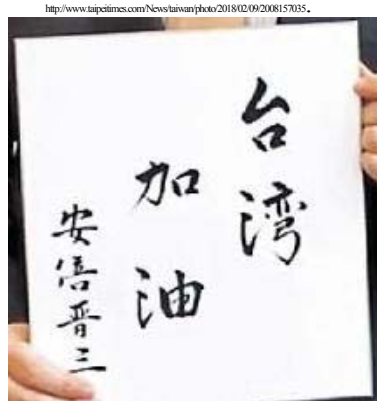 http://www.taipeitimes.com/News/taiwan/photo/2018/02/09/2008157035.
台湾
加油
安倍晋三